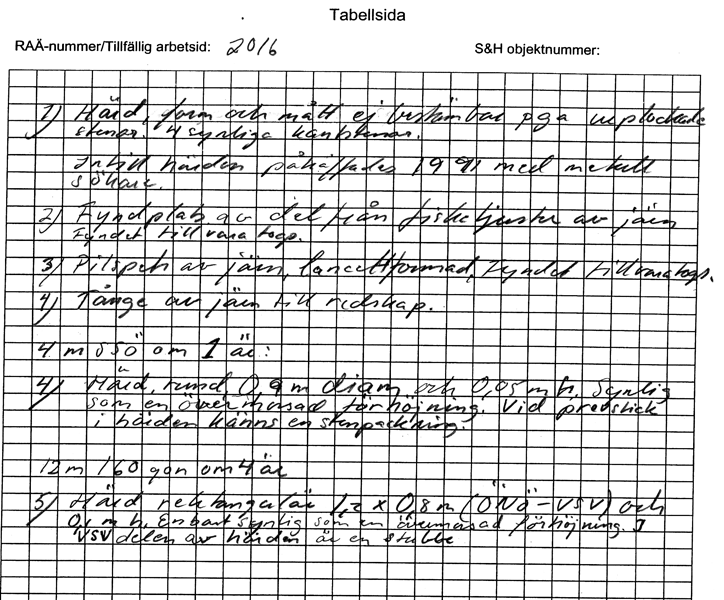 Tabellsida
RAÄ-nummer/Tillfällig arbetsid: 2016
S&H objektnummer:
1) Härd, form och mått ej bestämbar pga upplockade
stenar. 4 synliga kantstenar.
Intill härden påträffades 1991 med metall
sökare.
2) Fyndplats av del från fiskeljuster av järn
Fyndet tillvaratogs.
3) Pilspets av järn, lancettformad, Fyndet tillvaratogs.
4) Tånge av järn till redskap.
4 m SSÖ om 1 är:
4) Härd, rund 0,9 m diam och 0,05 m h. Synlig
som en övermossad förhöjning. Vid provstick
i härden känns en stenpackning.
12 m 160 gon om 4 är
5) Härd rektangulär 1,2 x 0,8 m (ÖNÖ-VSV) och
0,1 m h. Enbart synlig som en övermossad förhöjning. I
VSV delen av härden är en stubbe